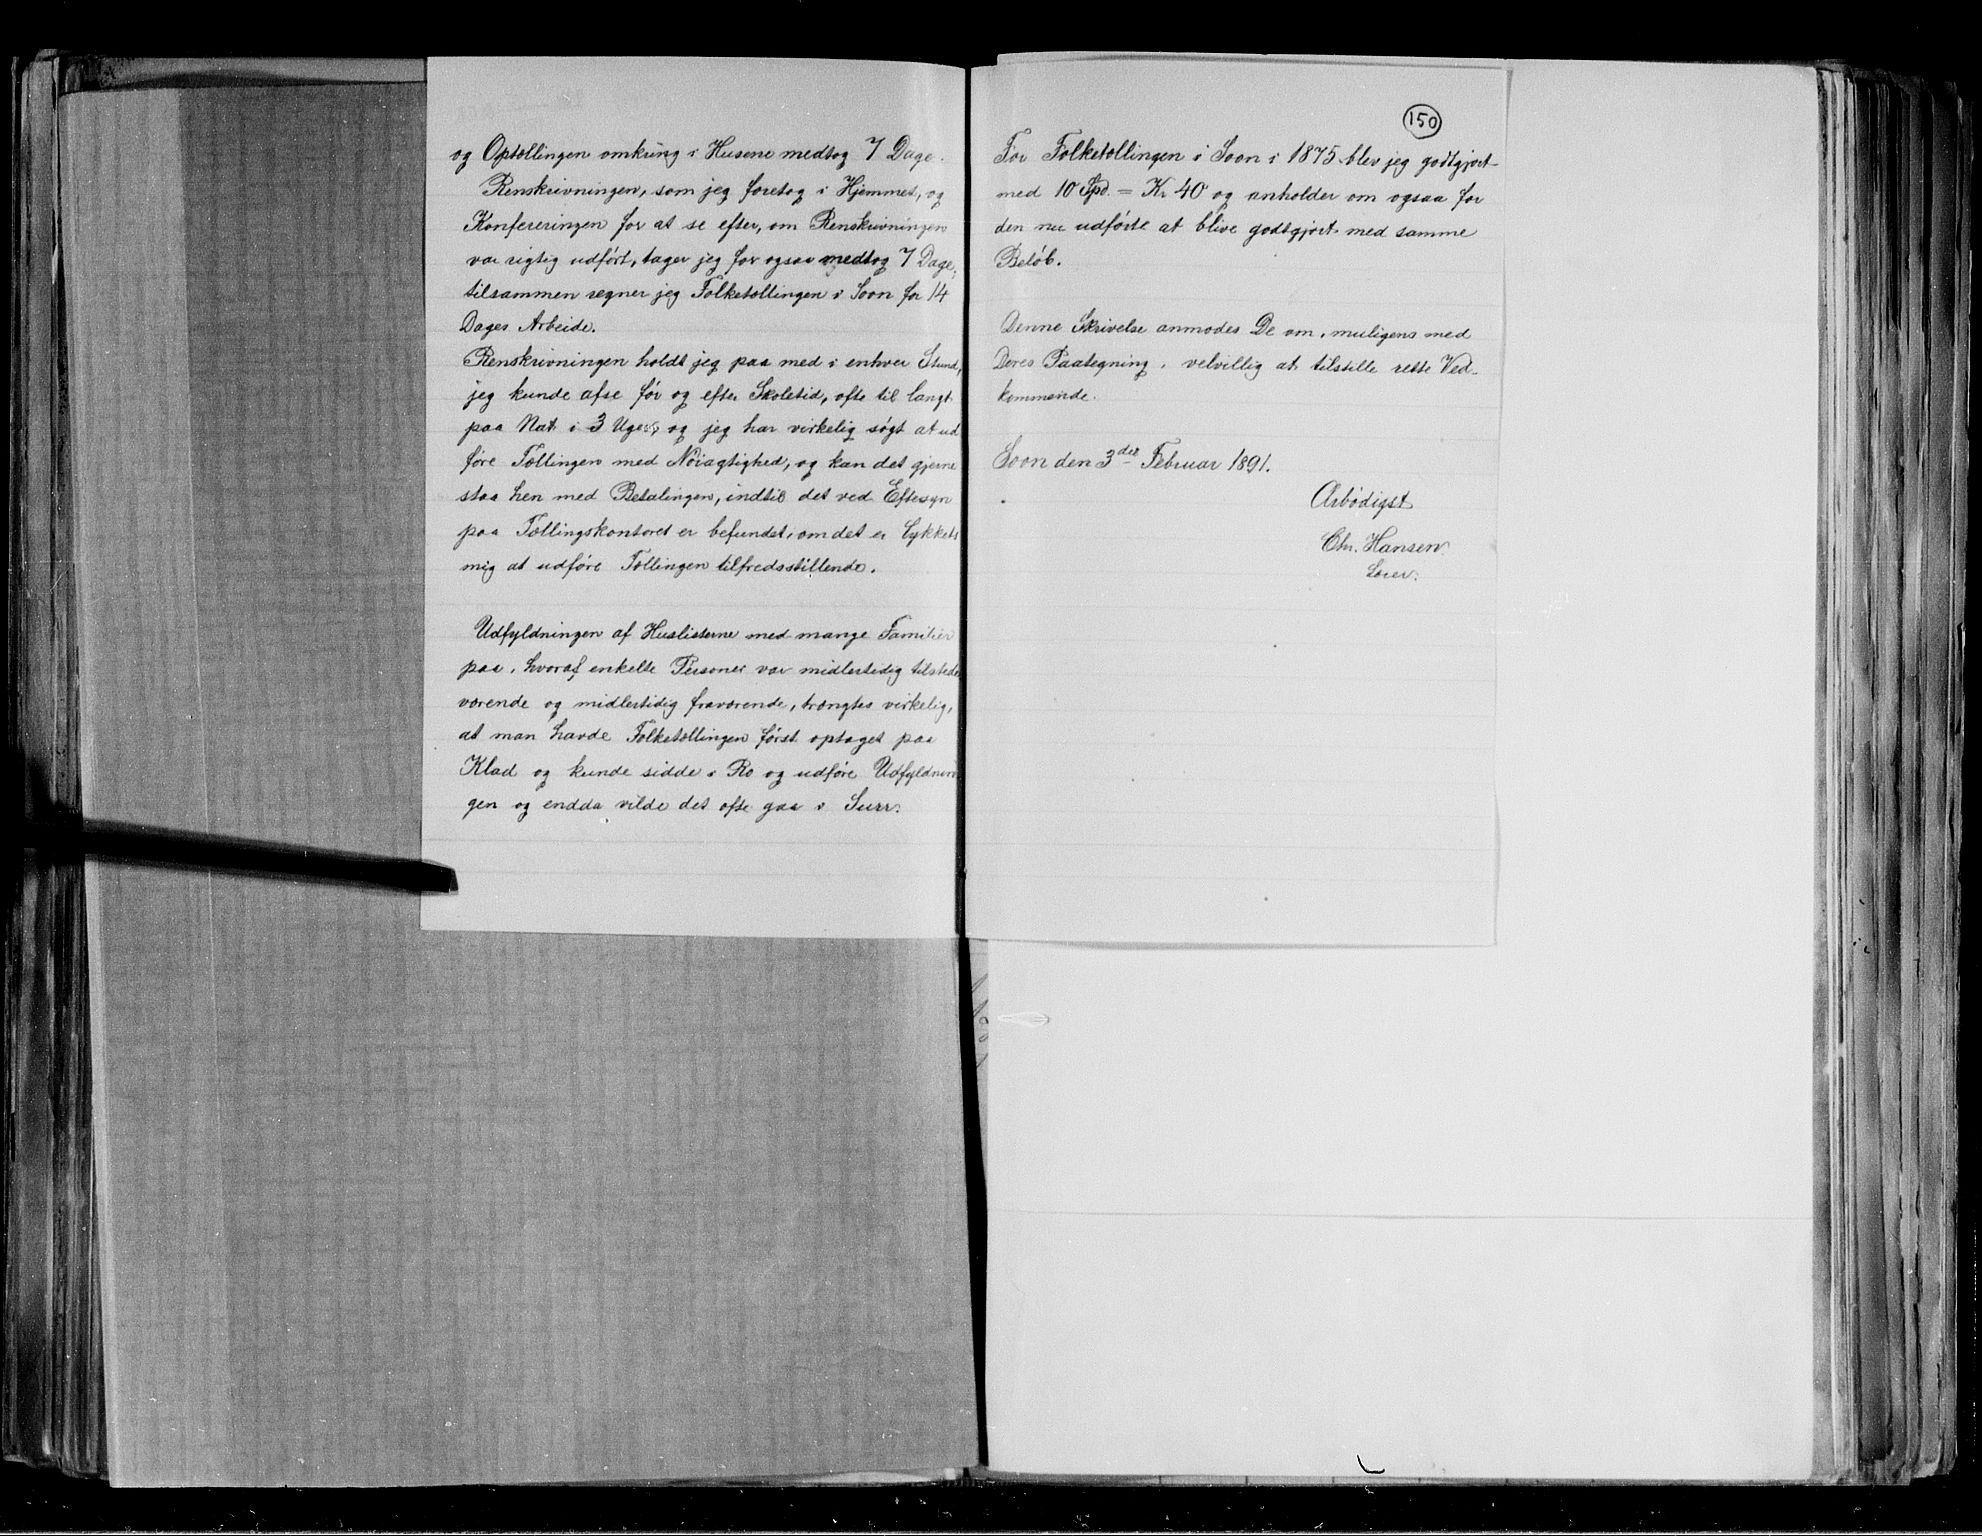 og Optællingen omkring i Husene medtog 7 Dage.
Renskrivningen, som jeg foretog i Hjemmet, og
Konfereringen for at se efter, om Renskrivningen
var rigtig udført, tager jeg for ogsaa medtog 7 Dage,
tilsammen regner jeg Folketællingen i Soon for 14
Dages Arbeide.
Renskrivningen holdt jeg paa med i enhver Stund,
jeg kunde afse før og efter Skoletid, ofte til langt
paa Nat i 3 Uger, og jeg har virkelig søgt at ud
føre Tællingen med Nøiagtighed, og kan det gjerne
staa hen med Betalingen, indtil det ved Eftersyn
paa Tællingskontoret er befundet, om det er lykkets
mig at udføre Tællingen tilfredsstillende.
Udfyldningen af Huslisterne med mange Familier
paa, hvoraf enkelte Personer var midlertidig tilstede
værende og midlertidig fraværende, trængtes virkelig,
at man havde Folketællingen først optaget paa
Klad og kunde sidde i Ro og udføre Udfyldnin
gen og endda vilde det ofte gaa i Surr.
150
For Folketællingen i Soon i 1875 blev jeg godtgjort
med 10 Spd. = Kr 40 og anholder om ogsaa for
den nu udførte at blive godtgjort med samme
Beløb.
Denne Skrivelse anmodes De om, muligens med
Deres Paategning, velvillig at tilstille rette Ved-
kommende.
Soon den 3die Februar 1891.
Ærbødigst
Chr. Hansen
Lærer.